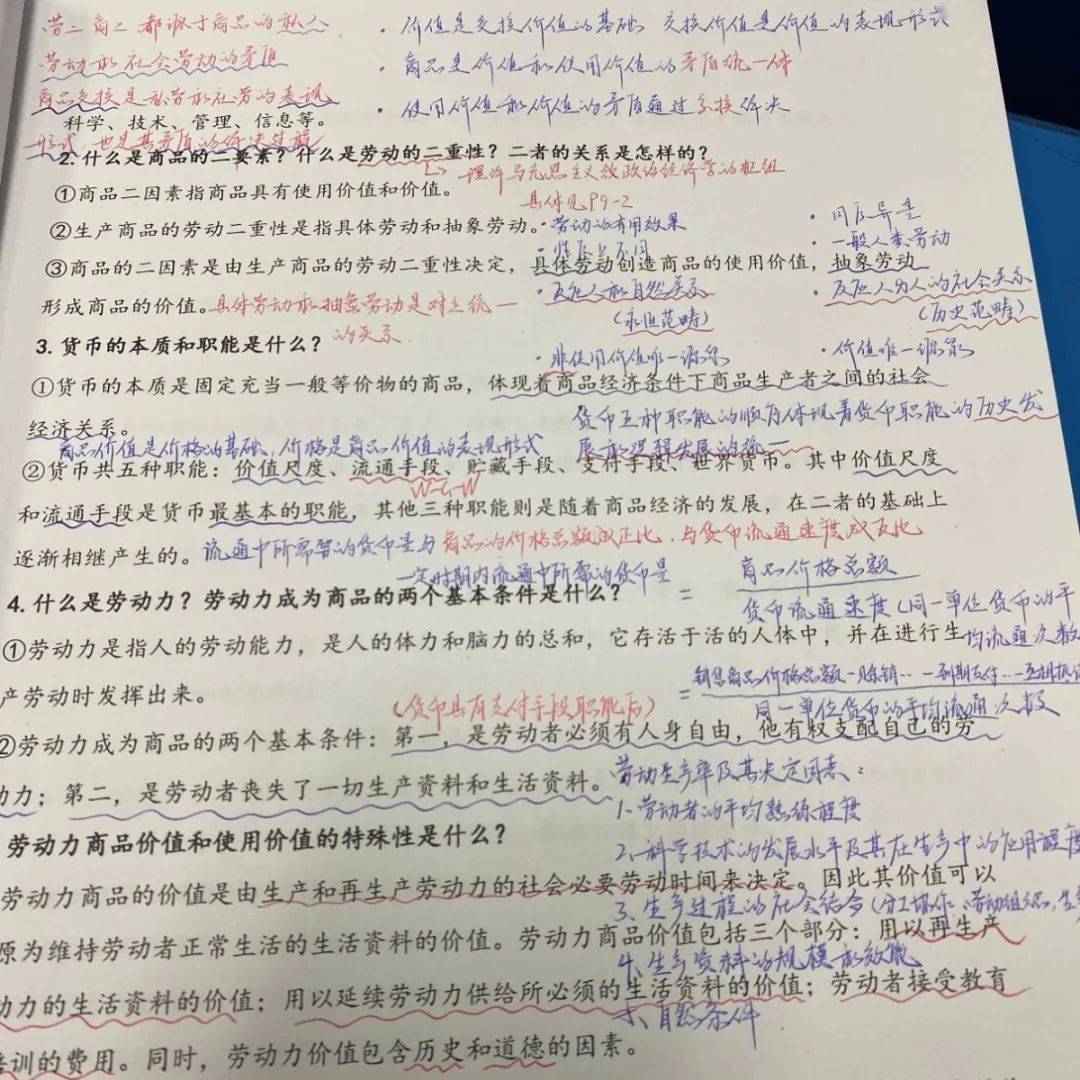 劳二商二都源于商品的私人
劳动和社会劳动的矛盾
商品交换是私劳和社劳的表现
形式，也是其矛盾的解决过程
·价值是交换价值的基础 交换价值是价值的表现形式
·商品是价值和使用价值的矛盾统一体
·使用价值和价值的矛盾通过交换解决
科学、技术、管理、信息等。
2. 什么是商品的二要素？什么是劳动的二重性？二者的关系是怎样的？
理解马克思主义政治经济学的枢纽
①商品二因素指商品具有使用价值和价值。
具体见P9-2
②生产商品的劳动二重性是指具体劳动和抽象劳动。
·劳动的有用效果
·同质异量
·性质不同
·一般人类劳动
③商品的二因素是由生产商品的劳动二重性决定，具体劳动创造商品的使用价值，抽象劳动
·反应人和自然关系
·反应人与人的社会关系
形成商品的价值。具体劳动和抽象劳动是对立统一
的关系.
（永恒范畴）
（历史范畴）
3. 货币的本质和职能是什么？
·非使用价值唯一源泉
·价值唯一源泉
①货币的本质是固定充当一般等价物的商品，体现着商品经济条件下商品生产者之间的社会
经济关系。
货币五种职能的顺序体现着货币职能的历史发
展和逻辑发展的统一
商品价值是价格的基础，价格是商品价值的表现形式
②货币共五种职能：价值尺度、流通手段、贮藏手段、支付手段、世界货币。其中价值尺度
W-G-W
和流通手段是货币最基本的职能，其他三种职能则是随着商品经济的发展，在二者的基础上
逐渐相继产生的。流通中所需要的货币量与商品的价格总额成正比，与货币流通速度成反比
一定时期内流通中所需的货币量
= 商品价格总额
货币流通速度（同一单位货币的平
均流通次数
4. 什么是劳动力？劳动力成为商品的两个基本条件是什么？
①劳动力是指人的劳动能力，是人的体力和脑力的总和，它存活于活的人体中，并在进行生
产劳动时发挥出来。
（货币具有支付手段职能后）
= 销售商品价格总额-赊销..-到期支付..-互相抵
同一单位货币的平均流通次数
②劳动力成为商品的两个基本条件：第一，是劳动者必须有人身自由，他有权支配自己的劳
动力；第二，是劳动者丧失了一切生产资料和生活资料。
劳动生产率及其决定因素：
1、劳动者的平均熟练程度
劳动力商品价值和使用价值的特殊性是什么？
2、科学技术的发展水平及其在生产中的应用程度
劳动力商品的价值是由生产和再生产劳动力的社会必要劳动时间来决定。因此其价值可以
3、生产过程的社会结合（分工协作、劳动组织，生
原为维持劳动者正常生活的生活资料的价值。劳动力商品价值包括三个部分：用以再生产
4、生产资料的规模和效能
动力的生活资料的价值；用以延续劳动力供给所必须的生活资料的价值；劳动者接受教育
自然条件
培训的费用。同时，劳动力价值包含历史和道德的因素。